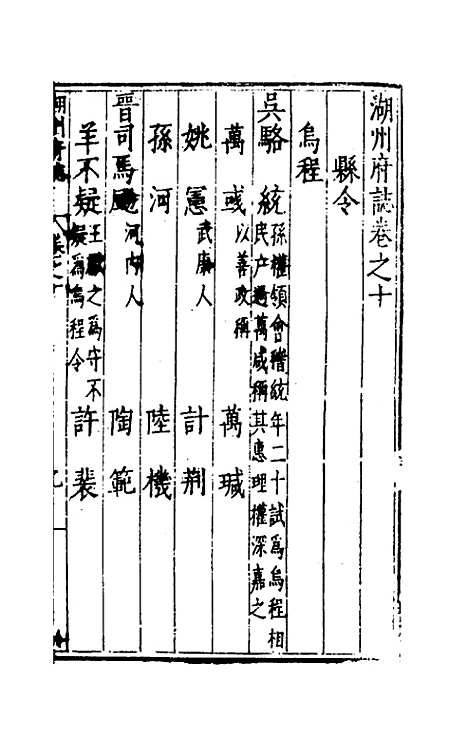 湖州府誌卷之十
縣令
烏程
吳駱統孫權領會稽統年二十試爲烏程相
民戶過萬咸稱其惠理權深嘉之
萬彧以善政稱 萬瑊
姚憲武康人 計荆
孫河 陸機
晉司馬河內人 陶範
羊不疑王之爲守不
疑爲烏程令 許裴